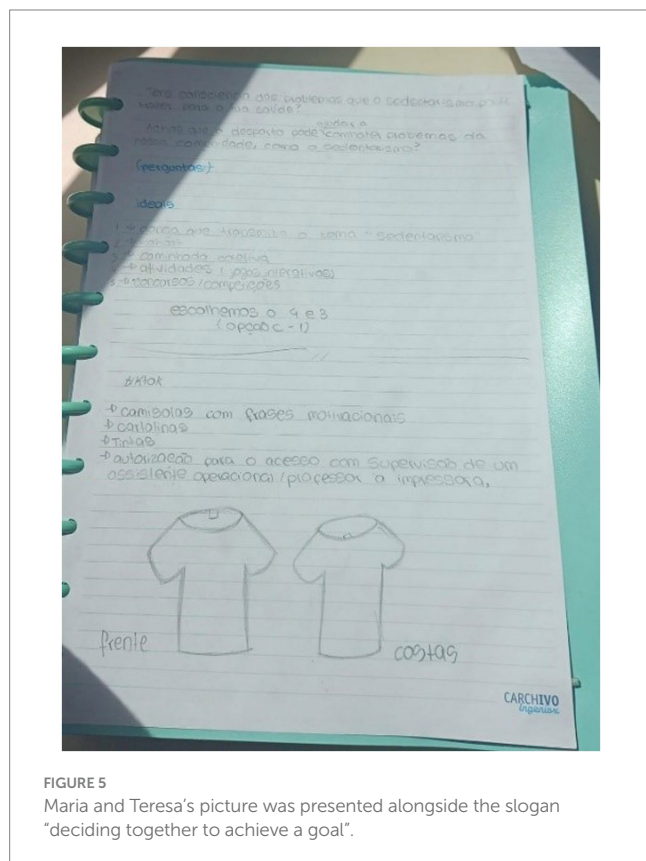 Tens consciência dos problemas que o sedentarismo pode
trazer para a tua saúde?
ajudar a
Achas que o desporto pode combater problemas da
nossa comunidade, como o sedentarismo?
(perguntas↑)
ideais
1 → dança que transmite o tema "sedentarismo"
2 →
3 → caminhada coletiva
4 → atividades (jogos interativos)
5 → concursos/competições
escolhemos o 4 e 3
(opção c - 1)
tiktok
→ camisolas com frases motivacionais
→ cartolinas
→ tintas
→ autorização para o acesso com supervisão de um
assistente operacional/processor a impressora,
frente
costas
CARCHIVO
Ingeniox
FIGURE 5
Maria and Teresa's picture was presented alongside the slogan
"deciding together to achieve a goal".